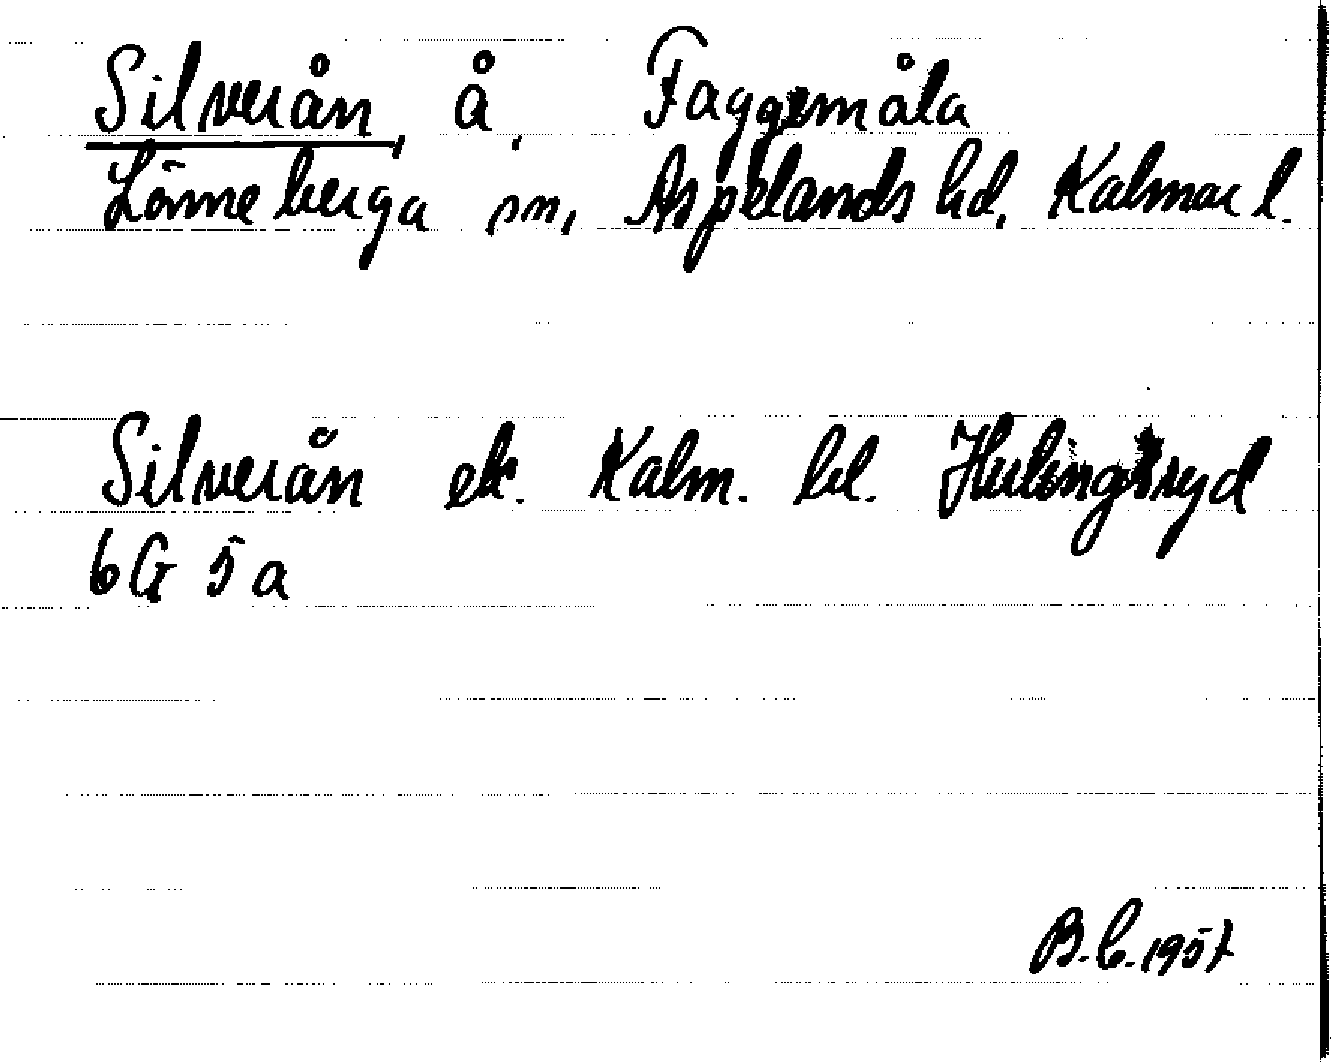 Silverån, å, Faggemåla
Lönneberga sn, Aspelands hd, Kalmar l.
Silverån ek. Kalm. bl. Hulingsryd
6G 5a
B.C. 1957